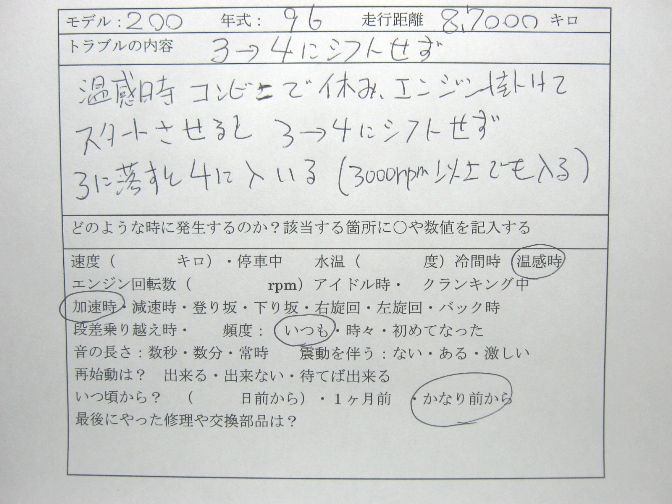 モデル：200 年式：96 走行距離 87000 キロ
トラブルの内容 3→4にシフトせず
温感時 コンビニで休み、エンジン掛けて
スタートさせると 3→4にシフトせず
3に落すと4に入いる (3000rpm以上でも入る)
どのような時に発生するのか？該当する箇所に○や数値を記入する
速度（ キロ）・停車中 水温（ 度）冷間時 温感時
エンジン回転数（ rpm）アイドル時・ クランキング中
加速時・減速時・登り坂・下り坂・右旋回・左旋回・バック時
段差乗り越え時・ 頻度： いつも・時々・初めてなった
音の長さ：数秒・数分・常時 震動を伴う：ない・ある・激しい
再始動は？ 出来る・出来ない・待てば出来る
いつ頃から？ （ 日前から）・１ヶ月前 ・かなり前から
最後にやった修理や交換部品は？